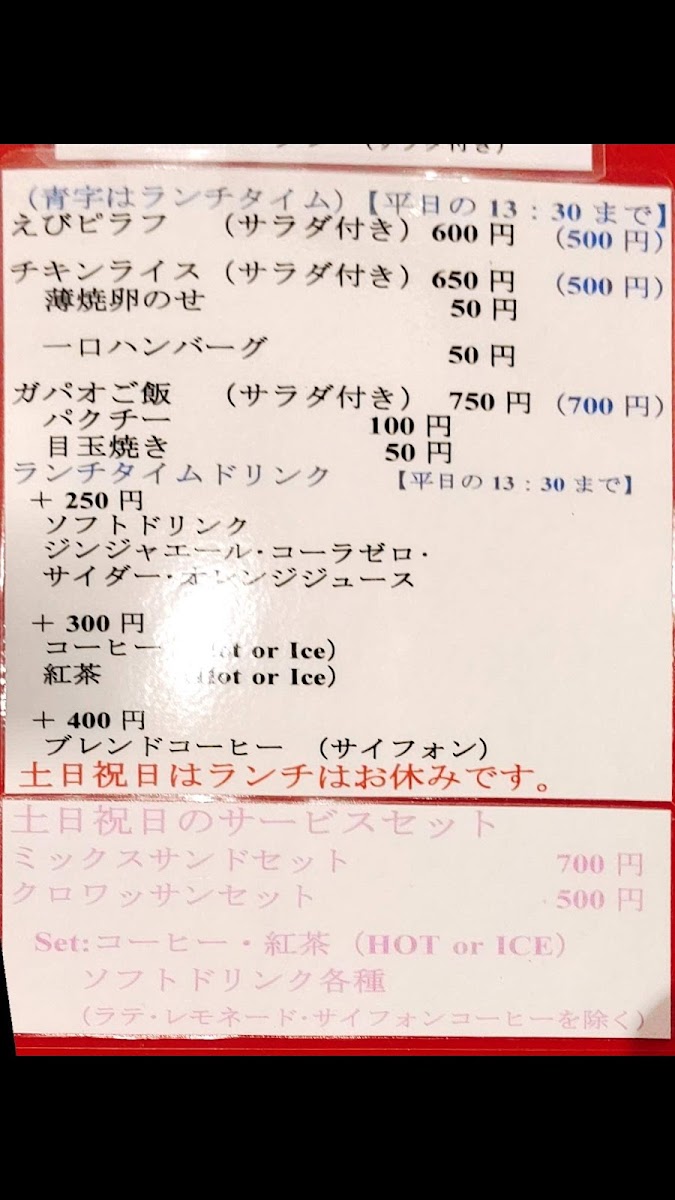 (サラダ付き)
(青字はランチタイム)【平日の 13：30 まで】
えびピラフ (サラダ付き) 600 円 (500 円)
チキンライス (サラダ付き) 650 円 (500 円)
薄焼卵のせ 50 円
一口ハンバーグ 50 円
ガパオご飯 (サラダ付き) 750 円 (700 円)
パクチー 100 円
目玉焼き 50 円
ランチタイムドリンク 【平日の 13：30 まで】
＋ 250 円
ソフトドリンク
ジンジャエール・コーラゼロ・
サイダー・オレンジジュース
＋ 300 円
コーヒー or Ice)
紅茶 (Hot or Ice)
＋ 400 円
ブレンドコーヒー (サイフォン)
土日祝日はランチはお休みです。
土日祝日のサービスセット
ミックスサンドセット 700 円
クロワッサンセット 500 円
Set:コーヒー・紅茶 (HOT or ICE)
ソフトドリンク各種
(ラテ・レモネード・サイフォンコーヒーを除く)